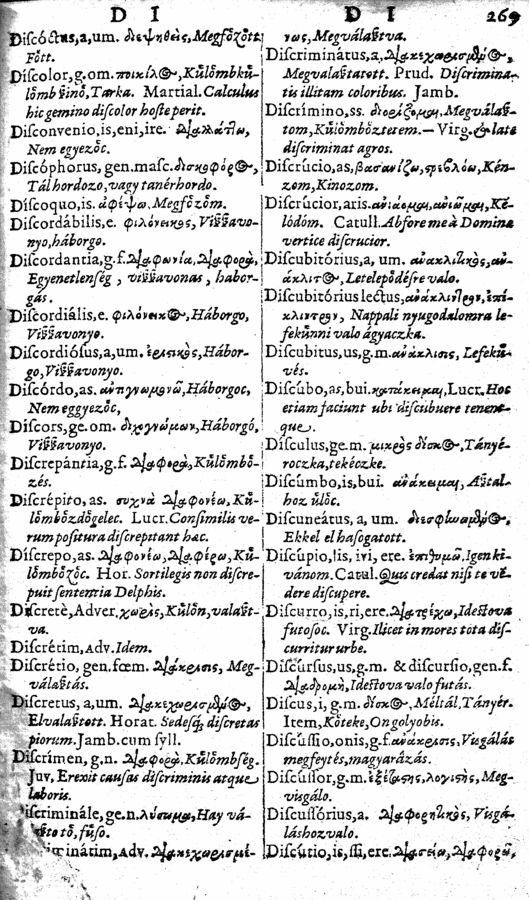 D I
D I 269
Discóctus,a,um. διεψηθεὶς,Megfözött
Fött.
Díscolor,g.om.ποικίλος,Külömbkü-
lömb ßinö,Tarka. Martial.Calculus
hic gemino discolor hoste perit.
Disconvenio,is,eni,ire. διαλλάττω,
Nem egyezöc.
Discóphorus,gen.masc.δισκοφόρος,
Tál hordozo,vagy tanér hordo.
Díscoquo,is.ἀφέψω,Megfözöm.
Discordábilis,e. φιλόνεικος, Vißßavo-
nyo,háborgo.
Discordantia,g.f.διαφωνία,διαφορὰ,
Egyenetlenség , vißßavonas , habor-
gás.
Discordiális,e. φιλόνεικος,Háborgo,
Vißßavonyo.
Discordiósus,a,um.ἐριστικὸς,Hábor-
go,Vißßavonyo.
Discórdo,as. Háborgoc,
Nem eggyezöc,
Discors,ge.om. διχογνώμων,Háborgó,
Vißßavonyo.
Discrepántia,g.f. διαφορὰ,Külömbö-
zés.
Discrépito,as. συχνὰ διαφονέω, Kü-
lömbözdögelec. Lucr.Consimilis ve-
rum positura discrepitant hæc.
Díscrepo,as.διαφονέω,διαφέρω,Kü-
lömbözöc. Hor.Sortilegis non discre-
puit sententia Delphis.
Discretè,Adver.χωρὶς,Külön,valaßt-
va.
Discrétim,Adv.Idem.
Discrétio,gen.fœm. διάκρισις, Meg-
válaßtás.
Discretus,a,um. διακεχωρισμένος,
Elvalaßtott. Horat. Sedesq́; discretas
piorum.Jamb.cum syll.
Discrímen,g.n. διαφορὰ,Külömbség.
Juv,Erexit causas discriminis atque
laboris.
Discriminále,ge.n.λύσωμα,Hay vá-
laßto tö,füso.
Discriminátim,Adv.διακεχωρισμέ-
νως,Megválaßtva.
Discriminátus,a,διακεχωρισμένος,
Megvalaßtatott. Prud. Discrimina-
tis illitam coloribus. Jamb.
Discrímino,ss. διορίζομαι,Megválaß-
tom,Külömböztetem.—Virg.& late
discriminat agros.
Discrúcio,as,βασανίζω,στρεβλόω,Kén-
zom,Kinozom.
Discrúcior,aris.ἀνιάομαι,ἀνιῶμαι,Ké-
lödöm. Catull.Abs fore me à Domina
vertice discrucior.
Discubitórius,a, um. ἀνακλιτικὸς,ἀν-
άκλιτος,Letelepödésre valo.
Discubitórius lectus,ἀνάκλιντρον,ἐπί-
κλιντρον, Nappali nyugodalomra le-
fekünni valo ágyaczka.
Discubitus,us,g.m.ἀνάκλισις, Lefekü-
vés.
Discúbo,as,bui.κατάκειμαι,Lucr.Hoc
etiam faciunt ubi discubuere tenent-
que.
Dísculus,ge.m. μικρὸς δίσκος,Tányé-
roczka,teképczke.
Discúmbo,is,bui. ἀνάκειμαι,Aßtal-
hoz ülöc.
Discuneátus, a, um.
Ekkel el hasogatott.
Discúpio,lis, ivi, ere. ἐπιθυμῶ.Igen ki-
vánom.Catul.Quis credat nisi te vi-
dere discupere.
Discurro,is,ri,ere.διατρέχω,Idestova
futosoc. Virg.Ilicet in mores tota dis-
curritur urbe.
Discúrsus,us,g.m. & discursio,gen.f.
διαδρομὴ,Idestova valo futás.
Discus,i,g.m. δίσκος,Méltál,Tányér.
Item,Köteke,On golyobis.
Discússio,onis,g.f.ἀνάκρισις,Visgálás
megfeytés,magyarázás.
Discússor,g.m.ἐξέταστης,λογιστής, Meg-
visgálo.
Discussórius,a. διαφορητικὸς, Visgá-
láshoz valo.
Discútio,is,ssi,ere.διασείω,διαφορῶ,